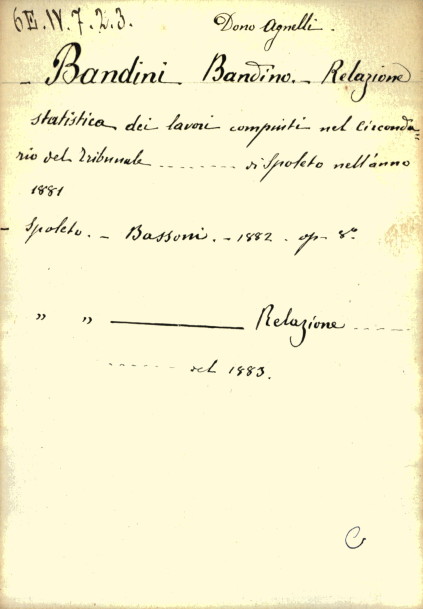 6E.IV.7.2.3. Dono Agnelli.
– Bandini Bandino. – Relazione
statistica dei lavori compiuti nel Circonda=
rio del Tribunale ........ di Spoleto nell'anno
1881
– Spoleto. – Bassoni. – 1882. op. 8°.
" " ———— Relazione ......
...... del 1883.
C